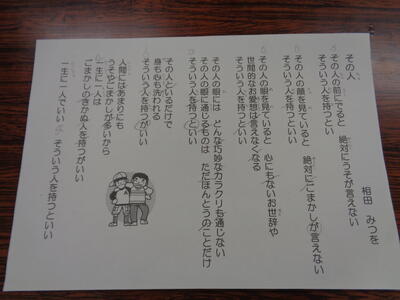 その人
相田　みつを
その人の前にでると　絶対にうそが言えない
そういう人を持つといい
その人の顔を見ていると　絶対にごまかしが言えない
そういう人を持つといい
その人の眼を見ていると　心にもないお世辞や
世間的なお愛想は言えなくなる
そういう人を持つといい
その人の眼には　どんな巧妙なカラクリも通じない
その人の眼に通じるものは　ただほんとうのことだけ
そういう人を持つがいい
その人といるだけで
身も心も洗われる
そういう人を持つがいい
人間にはあまりにも
うそやごまかしが多いから
一生に一人は
ごまかしのきかぬ人を持つがいい
一生に一人でいい　そういう人を持つといい